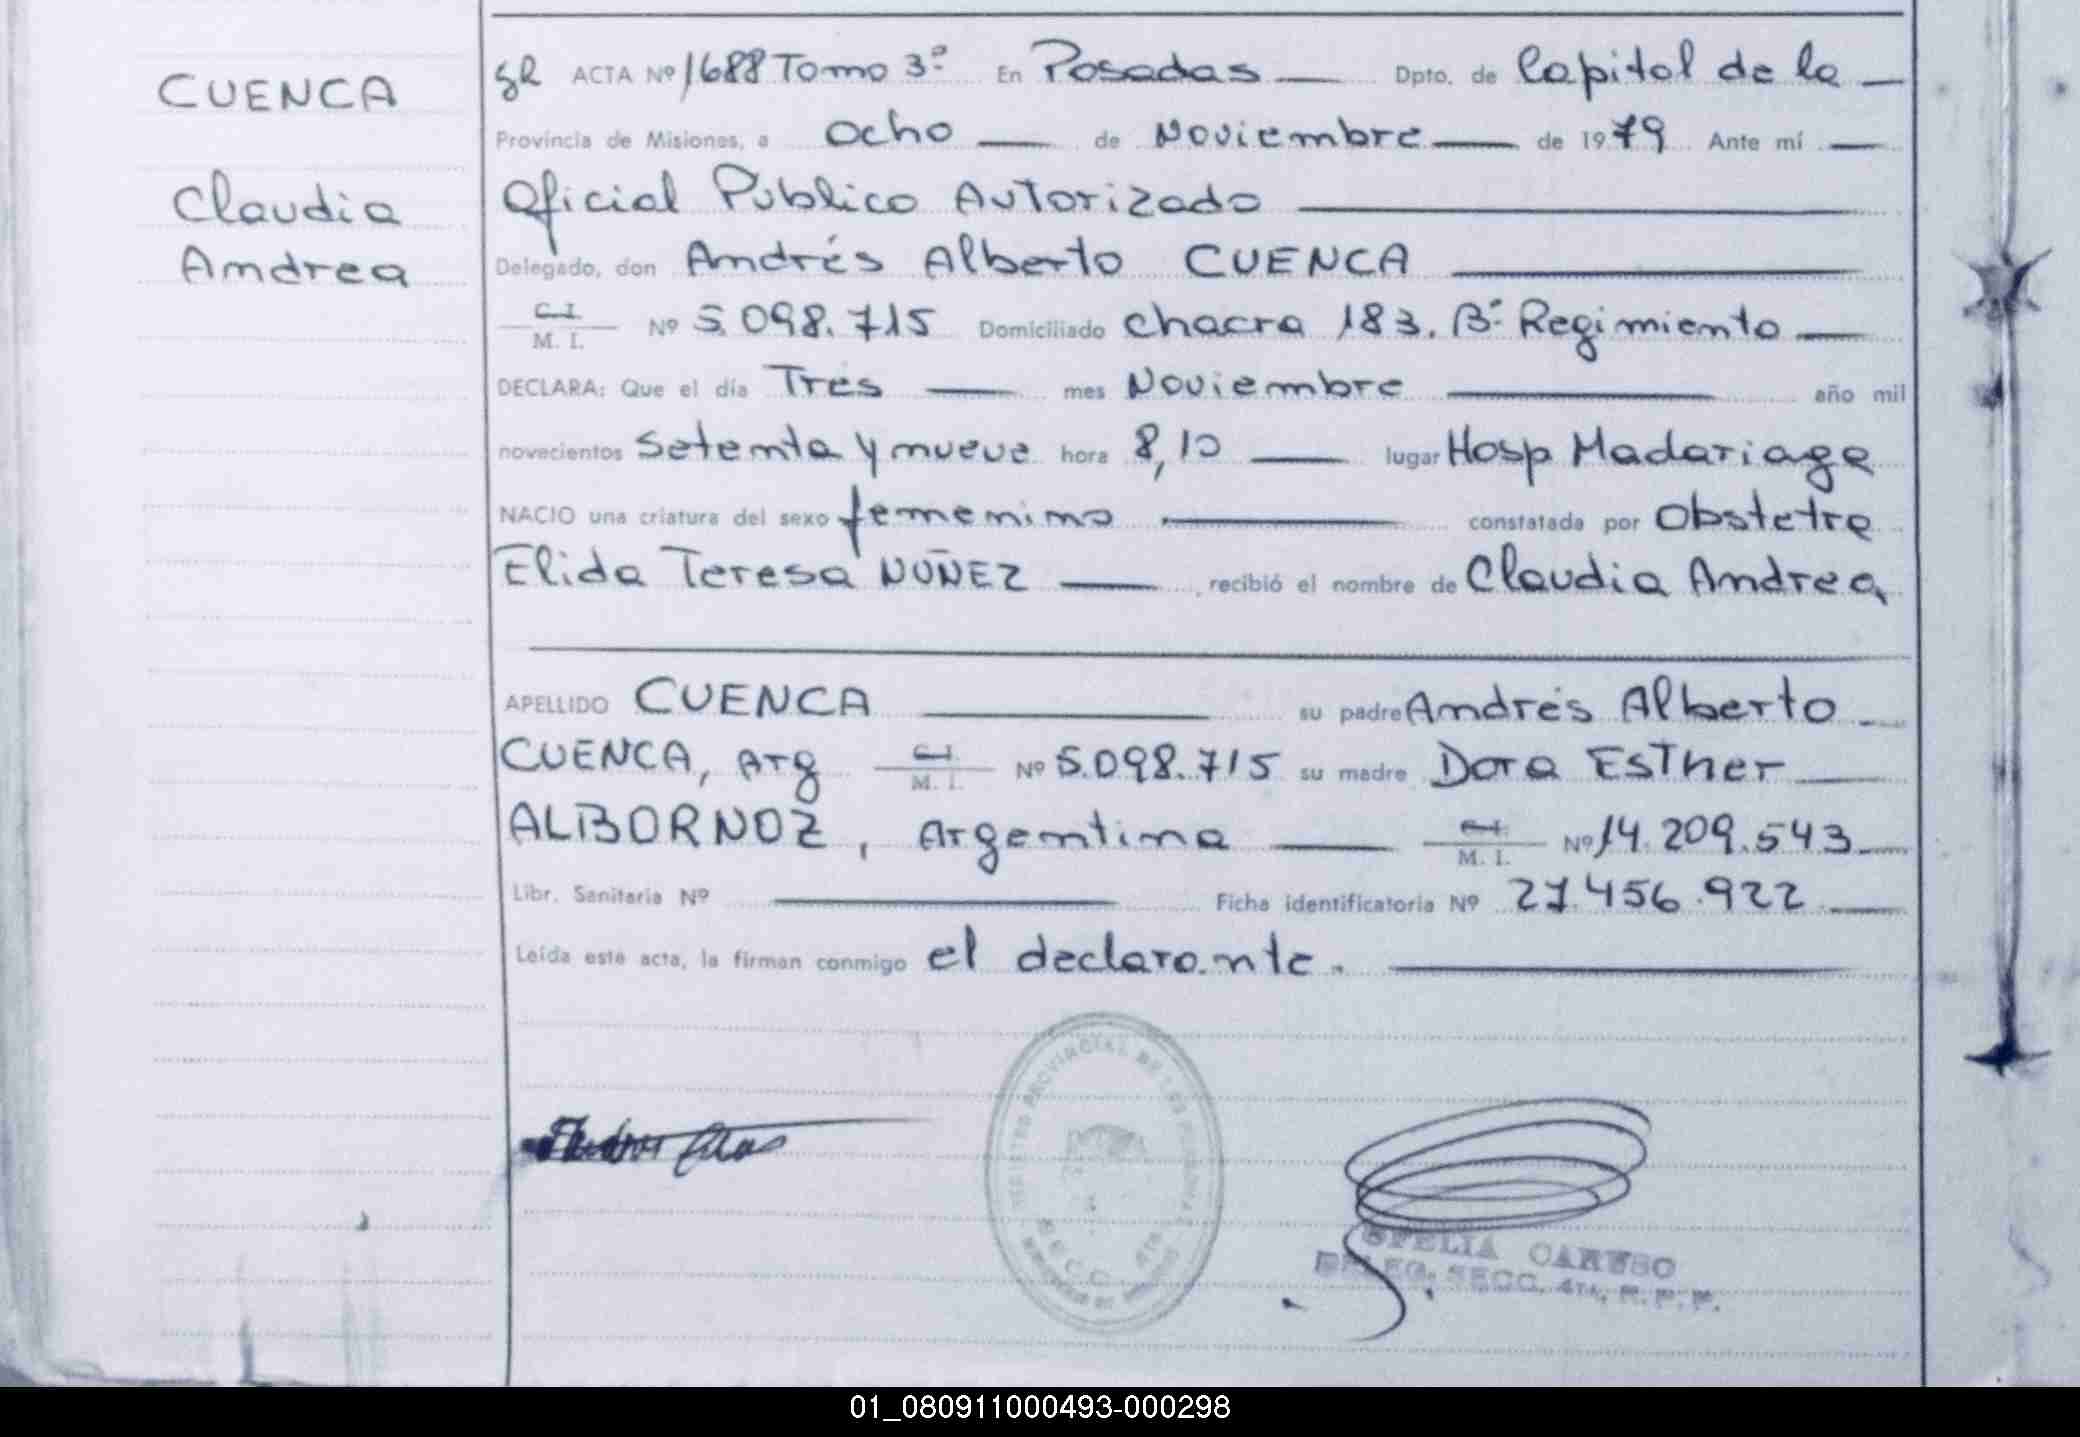 CUENCA
Claudia
Andrea
ACTA Nº 1688 Tomo 3º En Posadas Dpto. de Capital de la
Provincia de Misiones, a ocho de Noviembre de 1979 Ante mí
Oficial Publico Autorizado
Delegado, don Andrés Alberto CUENCA
C.I.
M. I. Nº 5.098.715 Domiciliado chacra 183. Bº Regimiento
DECLARA: Que el día Tres mes Noviembre año mil
novecientos setenta y nueve hora 8,10 lugar Hosp Madariaga
NACIO una criatura del sexo femenino constatada por Obstetra
Elida Teresa NUÑEZ recibió el nombre de Claudia Andrea
APELLIDO CUENCA su padre Andrés Alberto
CUENCA, Arg C.I. M. I. Nº 5.098.715 su madre Dora Esther
ALBORNOZ, Argentina C.I. M. I. Nº 14.209.543
Libr. Sanitaria Nº Ficha identificatoria Nº 27.456.922
Leída esté acta, la firman conmigo el declarante.
OFELIA CARUSO
DELEG. SECC. 4ta. R. P. P.
01_080911000493-000298